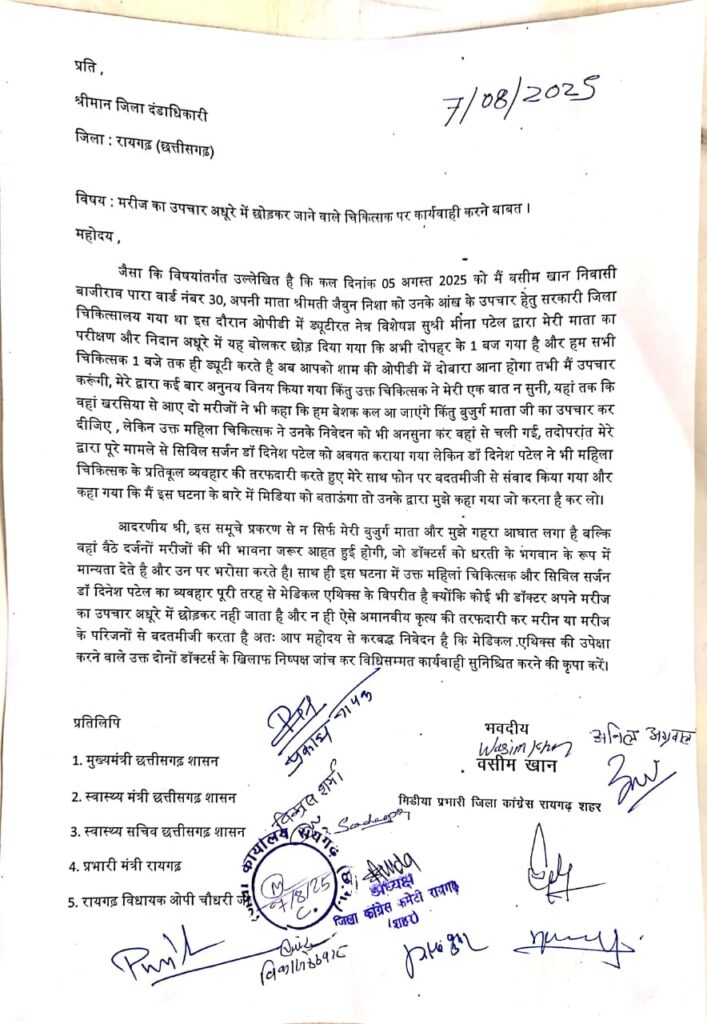 प्रति ,
7/08/2025
श्रीमान जिला दंडाधिकारी
जिला : रायगढ़ (छत्तीसगढ़)
विषय : मरीज का उपचार अधूरे में छोड़कर जाने वाले चिकित्सक पर कार्यवाही करने बाबत ।
महोदय ,
जैसा कि विषयांतर्गत उल्लेखित है कि कल दिनांक 05 अगस्त 2025 को मैं वसीम खान निवासी
बाजीराव पारा वार्ड नंबर 30, अपनी माता श्रीमती जैबुन निशा को उनके आंख के उपचार हेतु सरकारी जिला
चिकित्सालय गया था इस दौरान ओपीडी में ड्यूटीरत नेत्र विशेषज्ञ सुश्री मीना पटेल द्वारा मेरी माता का
परीक्षण और निदान अधूरे में यह बोलकर छोड़ दिया गया कि अभी दोपहर के 1 बज गया है और हम सभी
चिकित्सक 1 बजे तक ही ड्यूटी करते है अब आपको शाम की ओपीडी में दोबारा आना होगा तभी मैं उपचार
करूंगी, मेरे द्वारा कई बार अनुनय विनय किया गया किंतु उक्त चिकित्सक ने मेरी एक बात न सुनी, यहां तक कि
वहां खरसिया से आए दो मरीजों ने भी कहा कि हम बेशक कल आ जाएंगे किंतु बुजुर्ग माता जी का उपचार कर
दीजिए , लेकिन उक्त महिला चिकित्सक ने उनके निवेदन को भी अनसुना कर वहां से चली गई, तदोपरांत मेरे
द्वारा पूरे मामले से सिविल सर्जन डॉ दिनेश पटेल को अवगत कराया गया लेकिन डॉ दिनेश पटेल ने भी महिला
चिकित्सक के प्रतिकूल व्यवहार की तरफदारी करते हुए मेरे साथ फोन पर बदतमीजी से संवाद किया गया और
कहा गया कि मैं इस घटना के बारे में मिडिया को बताऊंगा तो उनके द्वारा मुझे कहा गया जो करना है कर लो।
आदरणीय श्री, इस समूचे प्रकरण से न सिर्फ मेरी बुजुर्ग माता और मुझे गहरा आघात लगा है बल्कि
वहां बैठे दर्जनों मरीजों की भी भावना जरूर आहत हुई होगी, जो डॉक्टर्स को धरती के भगवान के रूप में
मान्यता देते है और उन पर भरोसा करते है। साथ ही इस घटना में उक्त महिला चिकित्सक और सिविल सर्जन
डॉ दिनेश पटेल का व्यवहार पूरी तरह से मेडिकल एथिक्स के विपरीत है क्योंकि कोई भी डॉक्टर अपने मरीज
का उपचार अधूरे में छोड़कर नही जाता है और न ही ऐसे अमानवीय कृत्य की तरफदारी कर मरीन या मरीज
के परिजनों से बदतमीजी करता है अतः आप महोदय से करबद्ध निवेदन है कि मेडिकल एथिक्स की उपेक्षा
करने वाले उक्त दोनों डॉक्टर्स के खिलाफ निष्पक्ष जांच कर विधिसम्मत कार्यवाही सुनिश्चित करने की कृपा करें।
प्रतिलिपि
1. मुख्यमंत्री छत्तीसगढ़ शासन
2. स्वास्थ्य मंत्री छत्तीसगढ़ शासन
3. स्वास्थ्य सचिव छत्तीसगढ़ शासन
4. प्रभारी मंत्री रायगढ़
5. रायगढ़ विधायक ओपी चौधरी जी
भवदीय
Wasim Khan
वसीम खान
मिडीया प्रभारी जिला कांग्रेस रायगढ़ शहर
अनिल अग्रवाल
विमल शर्मा
कार्यालय रायगढ़ (छ.ग.)
7/8/25
अध्यक्ष
जिला कांग्रेस कमेटी रायगढ़
(शहर)